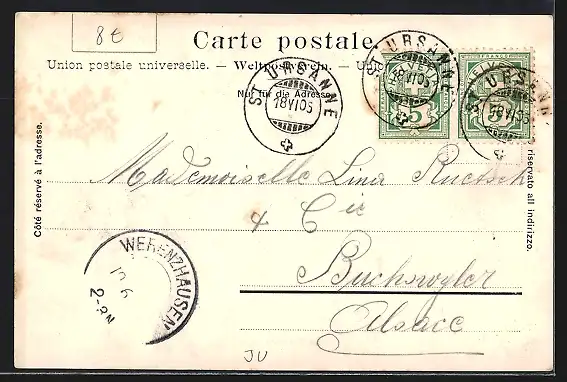 8€
Carte postale.
Union postale universelle. — Weltpostverein. —
Nur für die Adresse.
ST URSANNE
18 VI 05
ST URSANNE
18 VI 05
ST URSANNE
18 VI 05
FRANCO
5
5
Côté réservé à l'adresse.
riservato all indirizzo.
Mademoiselle Lina Ruetsch
& Cie
Buchswyler
Alsace
WERENZHAUSEN
2-3N
JU